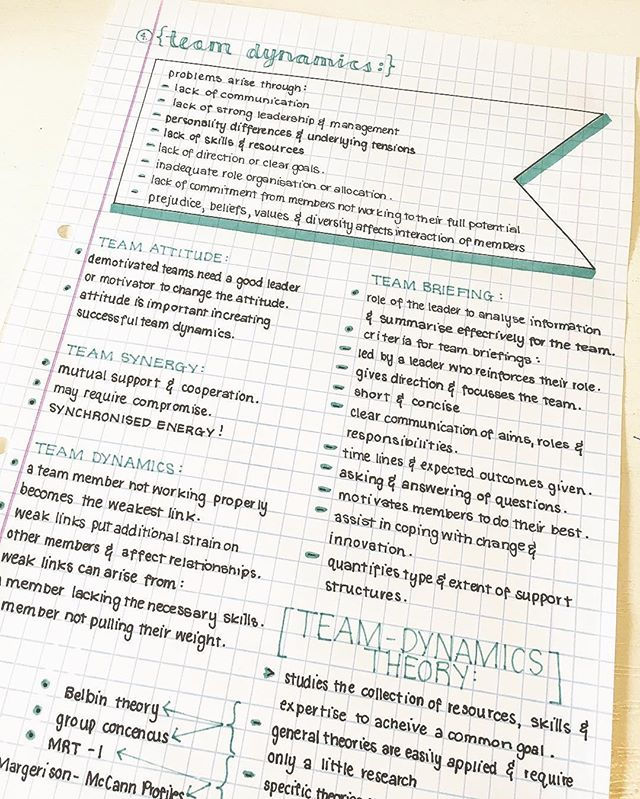 4. {team dynamics:}
problems arise through:
- lack of communication
- lack of strong leadership & management
- personality differences & underlying tensions
- lack of skills & resources
- lack of direction or clear goals.
- inadequate role organisation or allocation.
- lack of commitment from members not working to their full potential
- prejudice, beliefs, values & diversity affects interaction of members
TEAM ATTITUDE:
• demotivated teams need a good leader
or motivator to change the attitude.
• attitude is important increating
successful team dynamics.
TEAM SYNERGY:
• mutual support & cooperation.
• may require compromise.
• SYNCHRONISED ENERGY!
TEAM DYNAMICS:
• a team member not working properly
becomes the weakest link.
• weak links put additional strain on
other members & affect relationships.
weak links can arise from:
member lacking the necessary skills.
member not pulling their weight.
• Belbin theory
• group concencus
• MRT - I
Margerison - McCann Profiles
TEAM BRIEFING:
• role of the leader to analyse information
& summarise effectively for the team.
• criteria for team briefings:
- led by a leader who reinforces their role.
- gives direction & focusses the team.
- short & concise
- clear communication of aims, roles &
responsibilities.
- time lines & expected outcomes given.
- asking & answering of questions.
- motivates members to do their best.
- assist in coping with change &
innovation.
- quantifies type & extent of support
structures.
[TEAM-DYNAMICS
THEORY:]
> studies the collection of resources, skills &
expertise to acheive a common goal.
- general theories are easily applied & require
only a little research
- specific